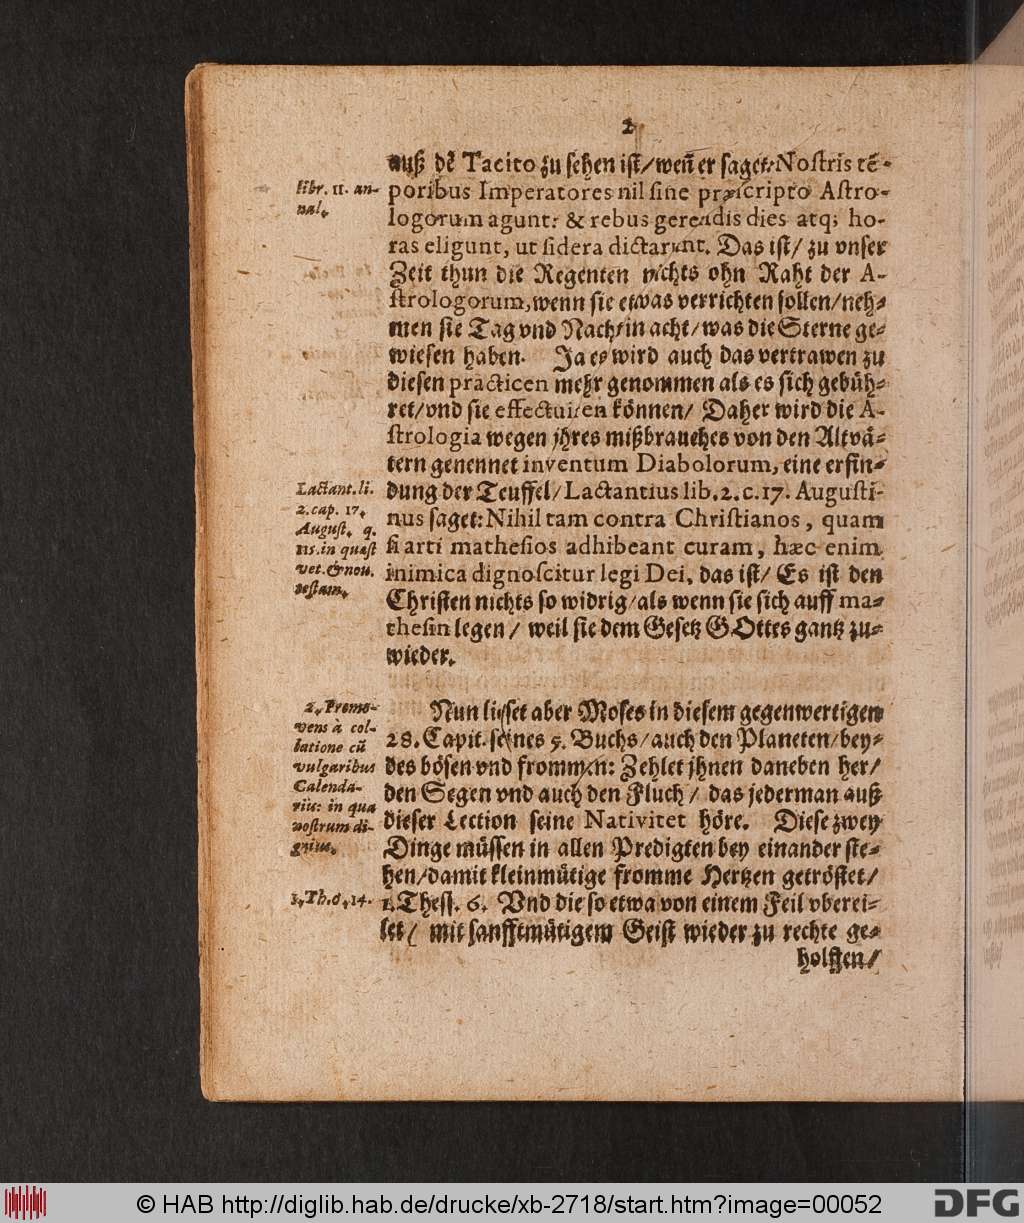 2
auß dē Tacito zu sehen ist/ weñ er saget: Nostris tē-
poribus Imperatores nil sine præscripto Astro-
logorum agunt: & rebus gerendis dies atq; ho-
ras eligunt, ut sidera dictarunt. Das ist/ zu vnser
Zeit thun die Regenten nichts ohn Raht der A-
strologorum, wenn sie etwas verrichten sollen/ neh-
men sie Tag vnd Nacht in acht/ was die Sterne ge-
wiesen haben. Ja es wird auch das vertrawen zu
diesen practicen mehr genommen als es sich gebüh-
ret/ vnd sie effectuiren können/ Daher wird die A-
strologia wegen jhres mißbrauches von den Altvä-
tern genennet inventum Diabolorum, eine erfin-
dung der Teuffel/ Lactantius lib. 2. c. 17. Augusti-
nus saget: Nihil tam contra Christianos, quam
si arti mathesios adhibeant curam, hæc enim
inimica dignoscitur legi Dei, das ist/ Es ist den
Christen nichts so widrig/ als wenn sie sich auff ma-
thesin legen/ weil sie dem Gesetz GOttes gantz zu-
wieder.
libr. 11. an-
nal.
Lactant. li.
2. cap. 17.
August. q.
115. in quæst
vet. & nov.
testam.
Nun lieset aber Moses in diesem gegenwertigen
28. Capit. seines 5. Buchs/ auch den Planeten/ bey-
des bösen vnd frommen: Zehlet jhnen daneben her/
den Segen vnd auch den Fluch/ das jederman auß
dieser Lection seine Nativitet höre. Diese zwey
Dinge müssen in allen Predigten bey einander ste-
hen/ damit kleinmütige fromme Hertzen getröstet/
1. Thess. 6. Vnd die so etwa von einem Feil vberei-
let/ mit sanfftmütigem Geist wieder zu rechte ge-
holffen/
2. Promo-
vens à col-
latione cū
vulgaribus
Calenda-
riis: in qua
nostrum di-
1. Th. 6. 14.
© HAB http://diglib.hab.de/drucke/xb-2718/start.htm?image=00052
DFG